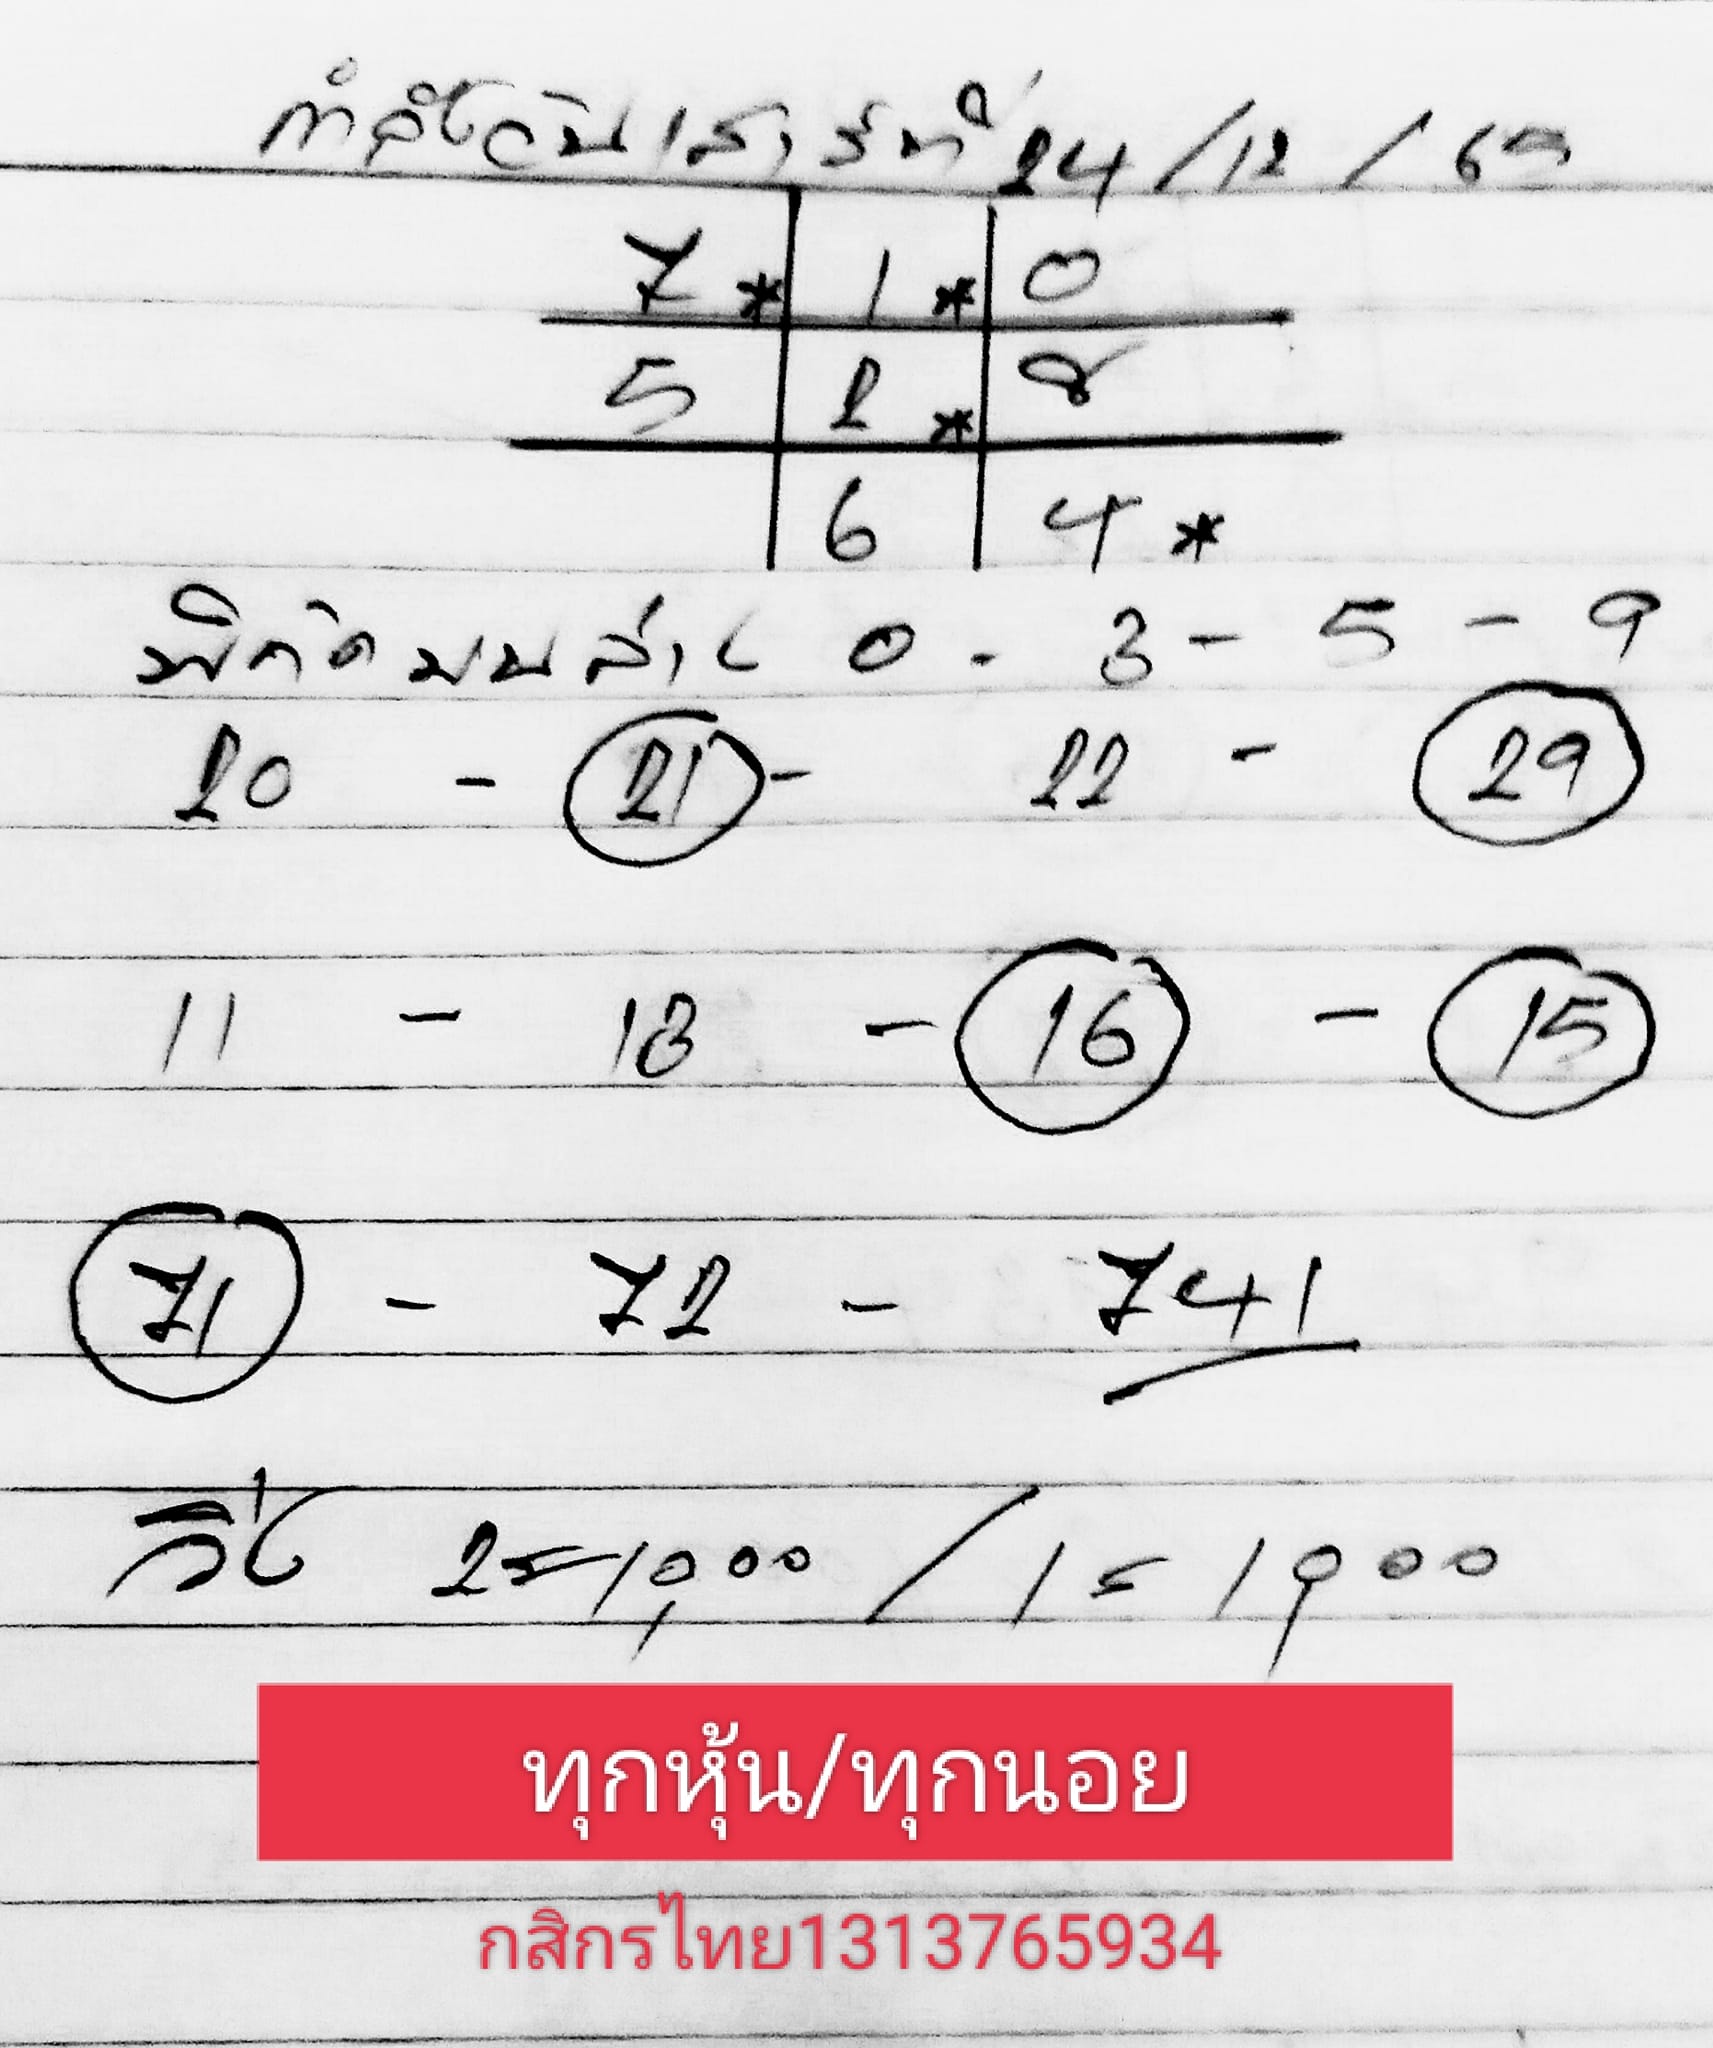 กำลังวันเสาร์ที่ 24/12/65
7* 1* 0
5 2* 8
6 4*
พิกัดบนล่าง 0 - 3 - 5 - 9
20 - 21 - 22 - 29
11 - 13 - 16 - 15
71 - 72 - 741
วิ่ง 2=1,000/1=1,000
ทุกหุ้น/ทุกนอย
กสิกรไทย1313765934